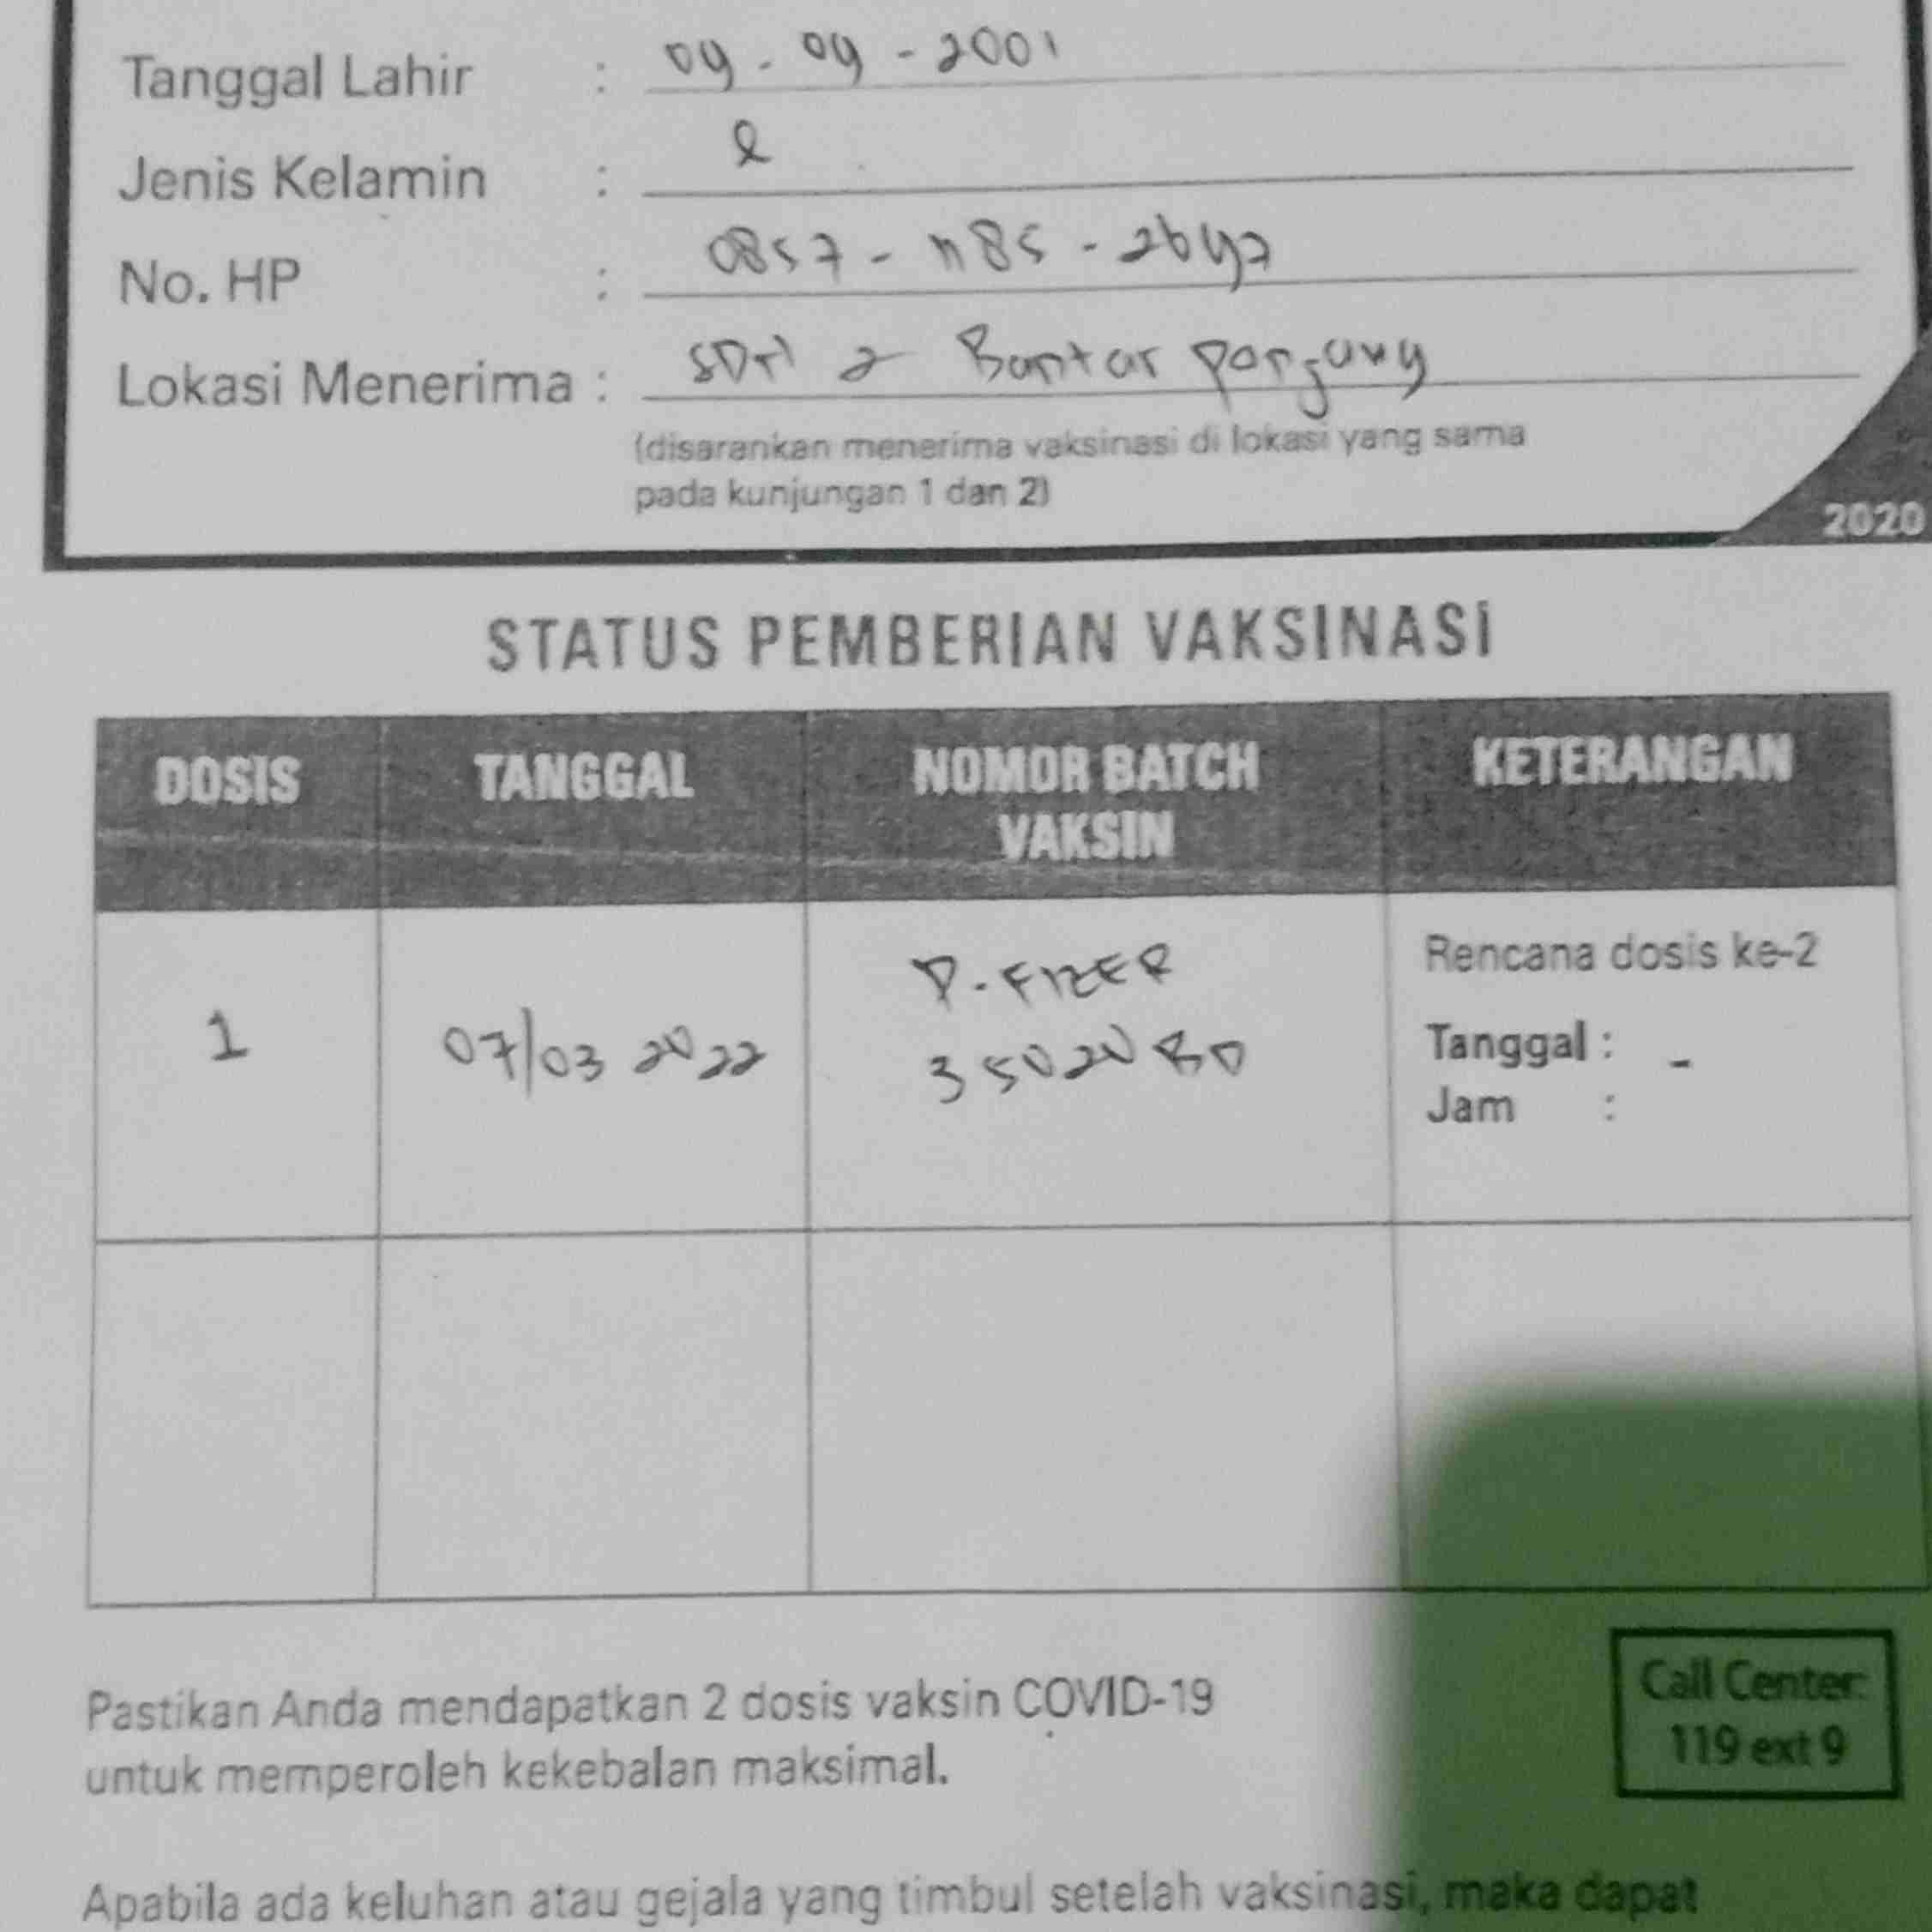 Tanggal Lahir : 09 - 09 - 2001
Jenis Kelamin : L
No. HP : 0857 - 1185 - 2647
Lokasi Menerima : SDN 2 Bantar panjang
(disarankan menerima vaksinasi di lokasi yang sama
pada kunjungan 1 dan 2)
2020
STATUS PEMBERIAN VAKSINASI
DOSIS TANGGAL NOMOR BATCH VAKSIN KETERANGAN
1 07/03 2022 P-FIZER 35020BD Rencana dosis ke-2
Tanggal : -
Jam :
Pastikan Anda mendapatkan 2 dosis vaksin COVID-19
untuk memperoleh kekebalan maksimal.
Call Center:
119 ext 9
Apabila ada keluhan atau gejala yang timbul setelah vaksinasi, maka dapat